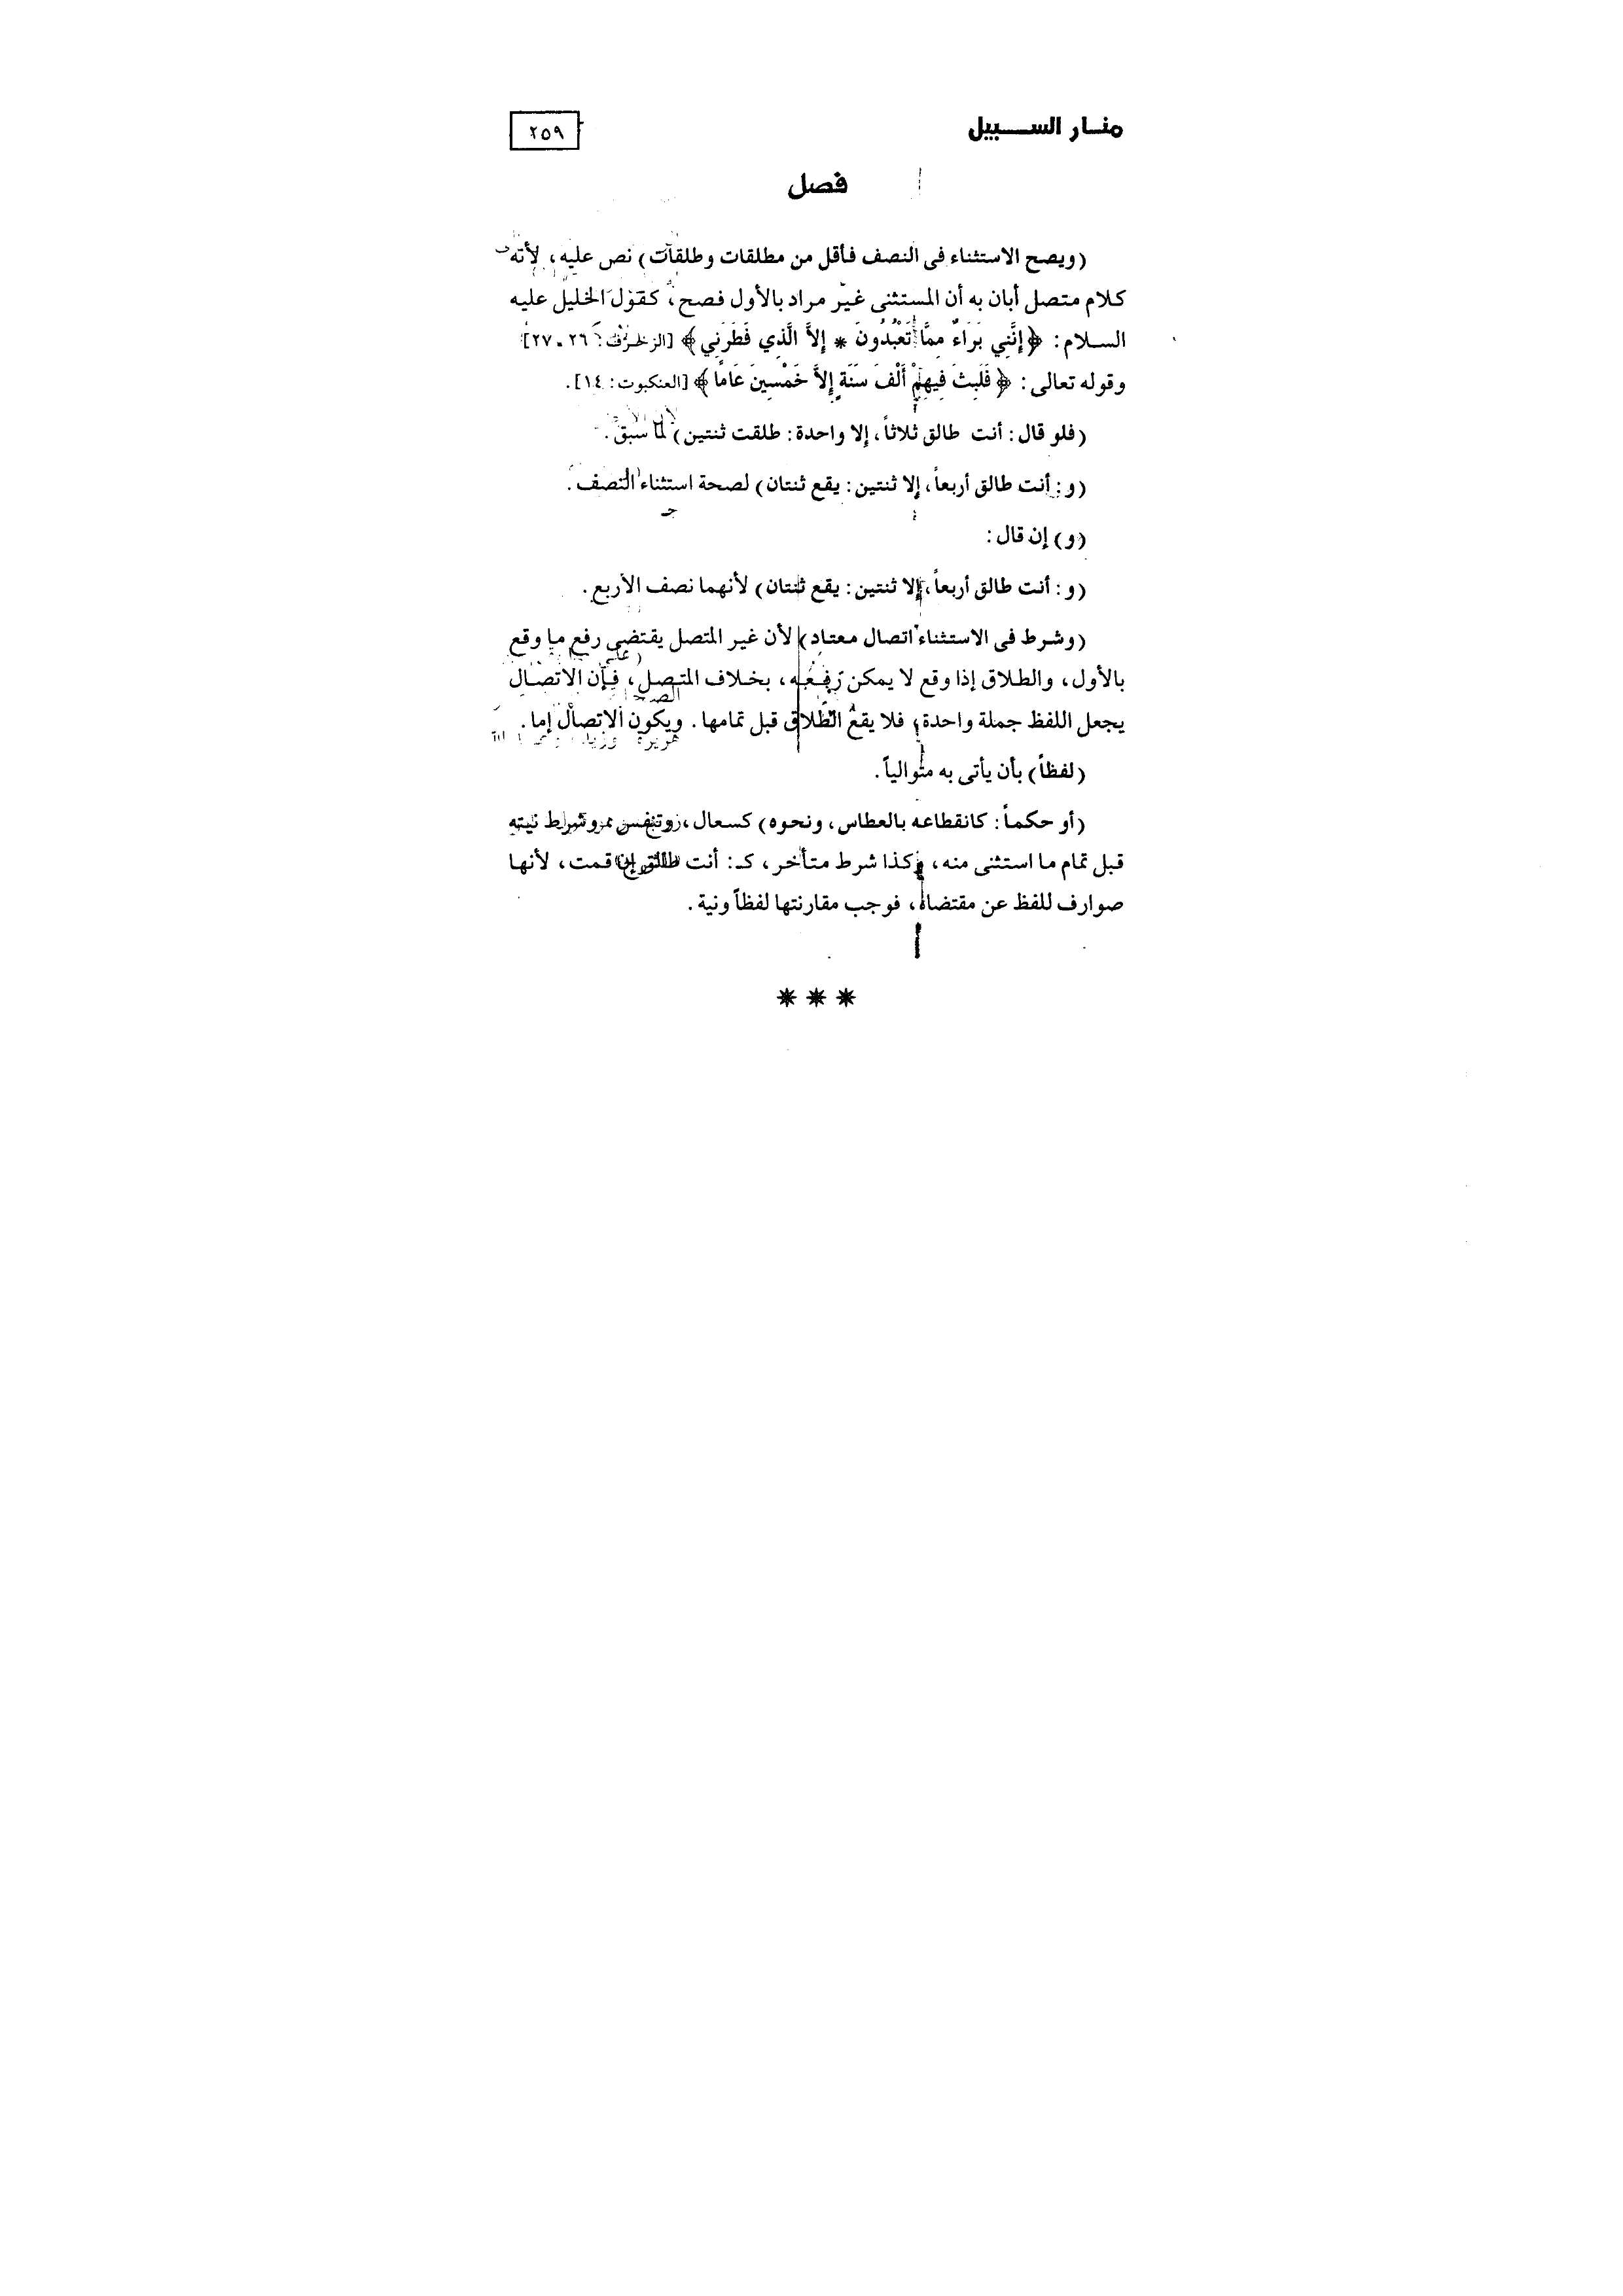 منار السبيل
٢٥٩
فصل
(ويصح الاستثناء فى النصف فأقل من مطلقات وطلقات) نص عليه، لأنه
كلام متصل أبان به أن المستثنى غير مراد بالأول فصح، كقول الخليل عليه
السلام: ﴿إِنَّنِي بَرَاءٌ مِمَّا تَعْبُدُونَ * إِلاَّ الَّذِي فَطَرَنِي﴾ [الزخرف: ٢٦ ـ ٢٧]
وقوله تعالى: ﴿فَلَبِثَ فِيهِمْ أَلْفَ سَنَةٍ إِلاَّ خَمْسِينَ عَامًا﴾ [العنكبوت: ١٤].
(فلو قال: أنت طالق ثلاثاً، إلا واحدة: طلقت ثنتين) لما سبق.
(و: أنت طالق أربعاً، إلا ثنتين: يقع ثنتان) لصحة استثناء النصف.
(و) إن قال:
(و: أنت طالق أربعاً، إلا ثنتين: يقع ثنتان) لأنهما نصف الأربع.
(وشرط فى الاستثناء اتصال معتاد) لأن غير المتصل يقتضى رفع ما وقع
بالأول، والطلاق إذا وقع لا يمكن رفعه، بخلاف المتصل، فإن الاتصال
يجعل اللفظ جملة واحدة، فلا يقع الطلاق قبل تمامها. ويكون الاتصال إما.
(لفظاً) بأن يأتى به متوالياً.
(أو حكماً: كانقطاعه بالعطاس، ونحوه) كسعال، وتنفس، وشرط نيته
قبل تمام ما استثنى منه، وكذا شرط متأخر، كـ: أنت طالق إن قمت، لأنها
صوارف للفظ عن مقتضاه، فوجب مقارنتها لفظاً ونية.